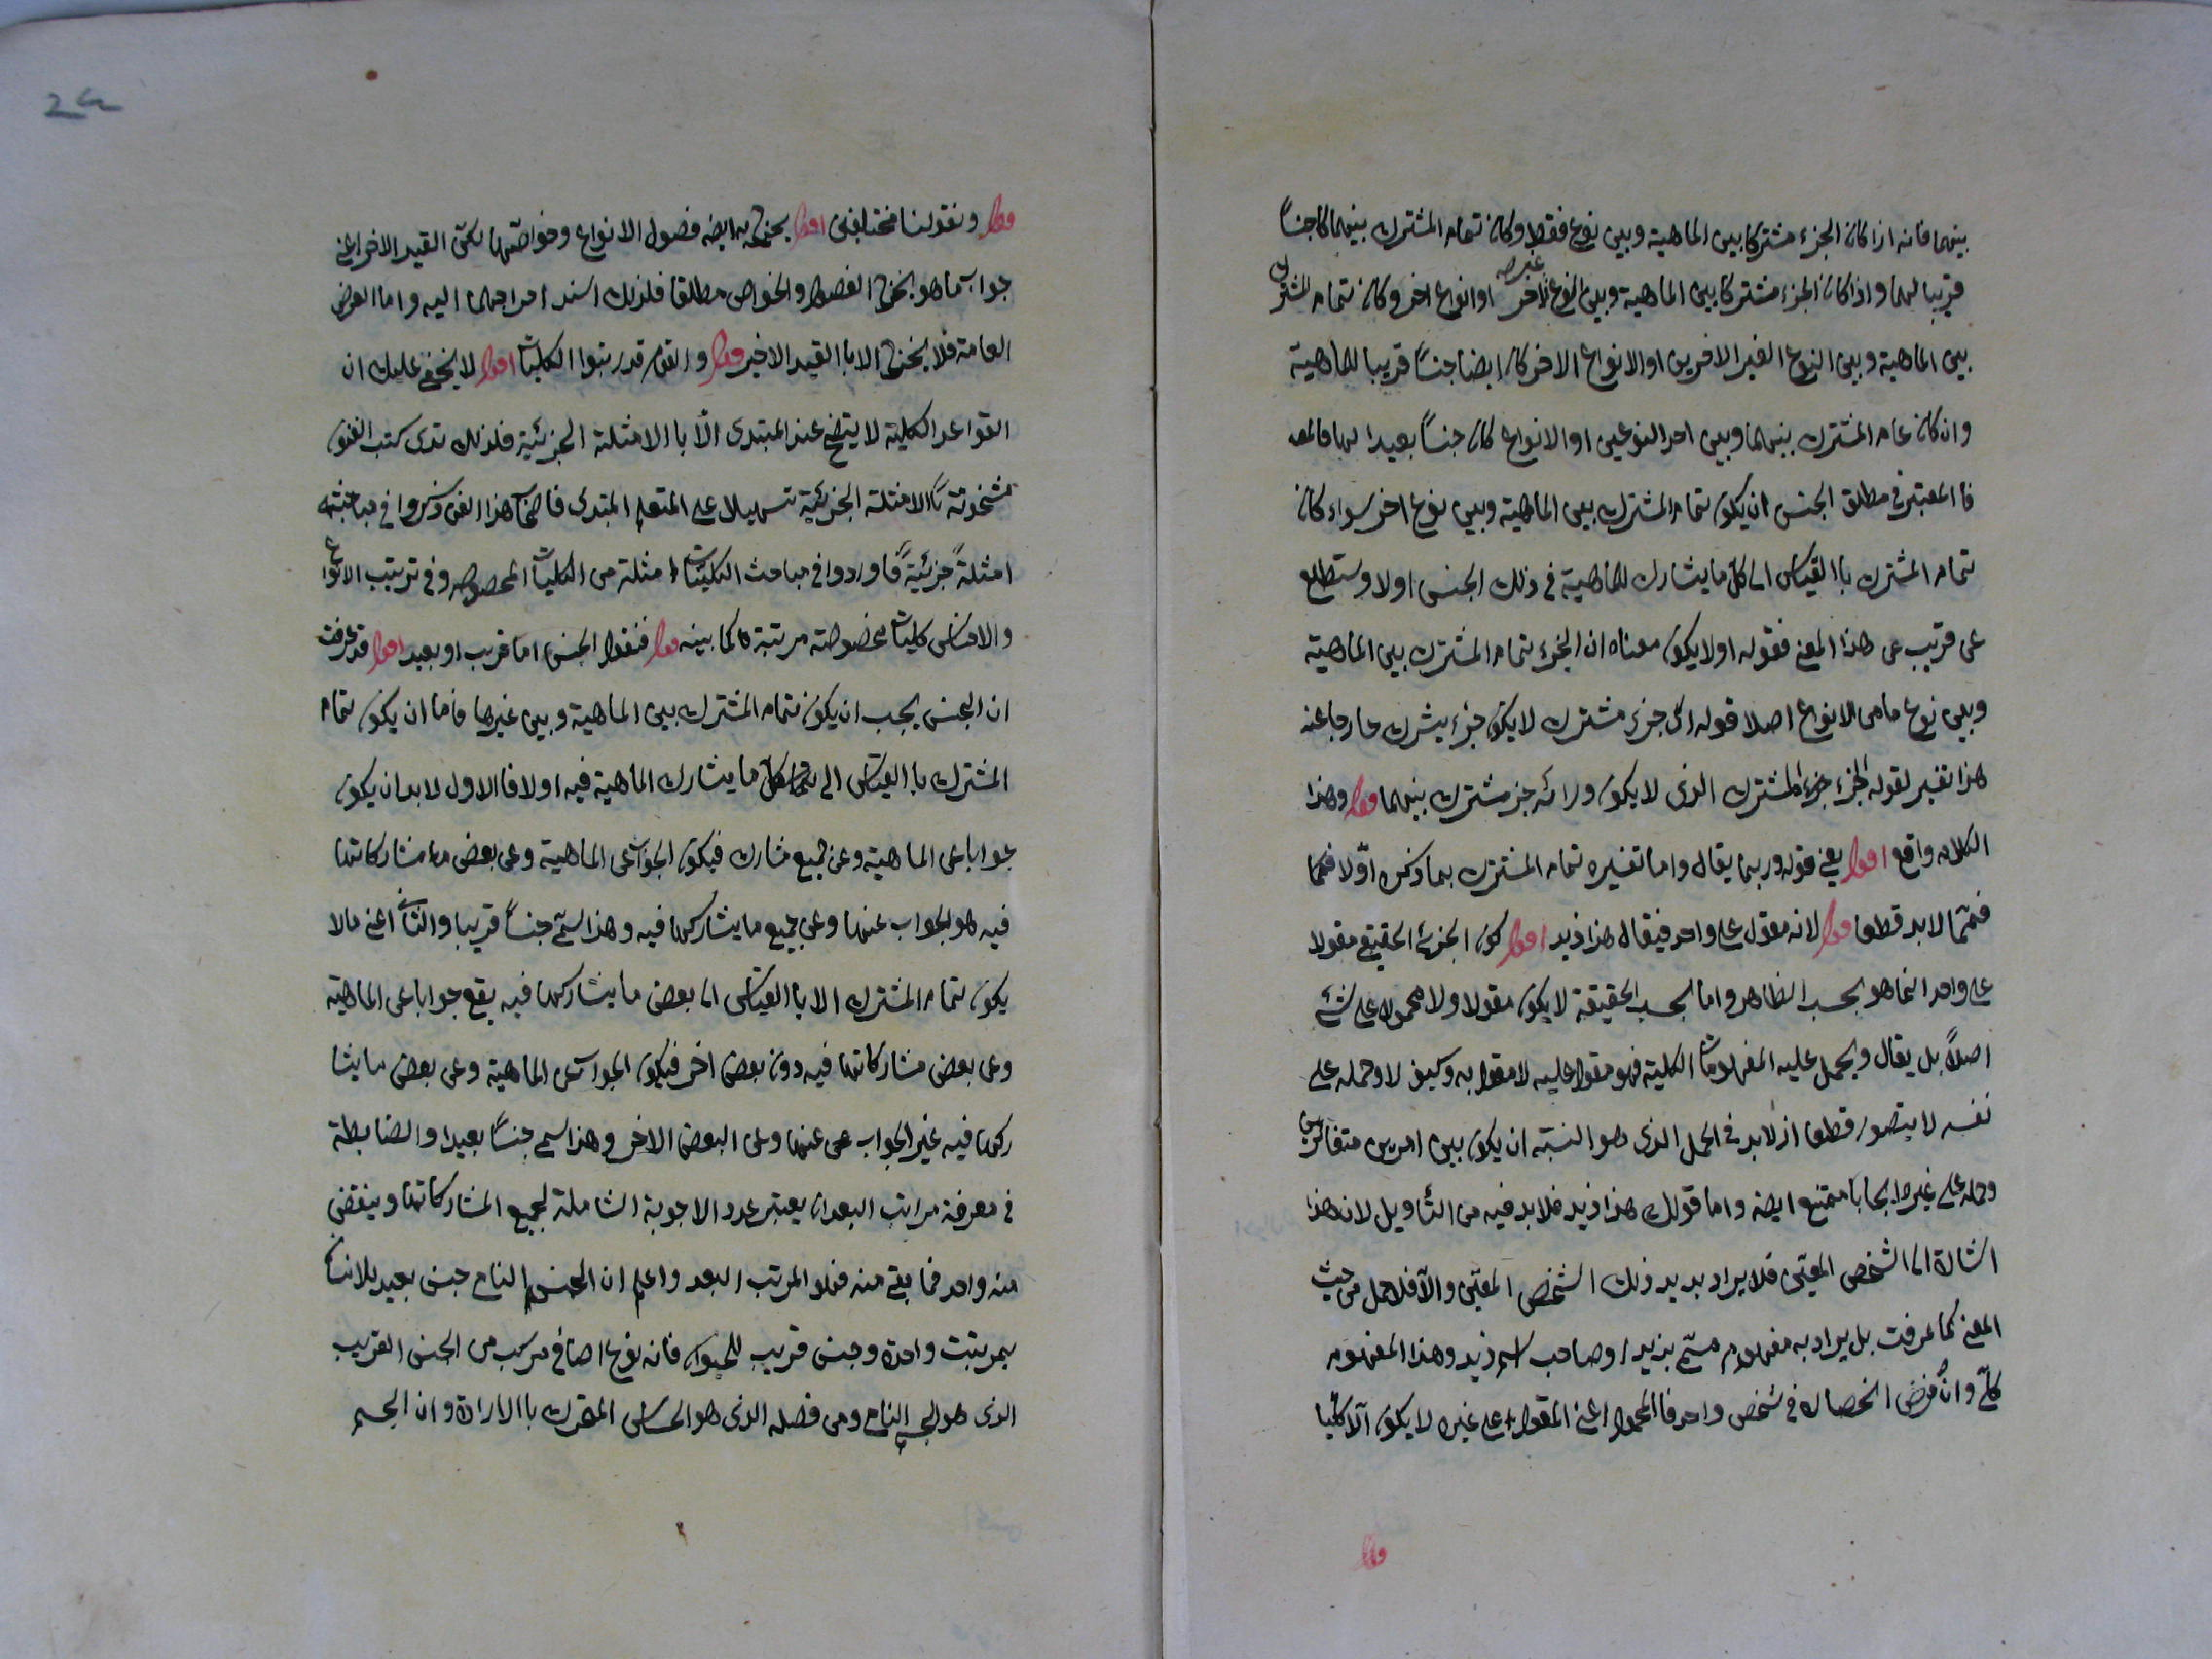 بينهما فانه اذا كان الجزء مشتركا بين الماهية وبين نوع فقط وكان تمام المشترك بينهما كا جنساً
قريبا لهما واذا كان الجزء مشتركا بين الماهية وبين نوع آخر غيره او انواع اخر وكان تمام المشترك
بين الماهية وبين النوع الغير الاخرين او الانواع الاخر كان ايضا جنساً قريبا للماهية
وان كان عام المشترك بينهما وبين احد النوعين او الانواع كان جنساً بعيدا لها
فا المعتبر في مطلق الجنس ان يكون تمام المشترك بين الماهية وبين نوع اخر سواء كان
تمام المشترك باالقياس الى كل ما يشارك للماهية في ذلك الجنس اولا وستطلع
عن قريب عن هذا المعنى فقوله اولا يكون معناه ان الجزء تمام المشترك بين الماهية
وبين نوع ما من الانواع اصلا قوله اى جزء مشترك لا يكون جزء يشرك خارجا عنه
هذا تفسير لقوله الجزء جزء المشترك الذى لا يكون ورائه جزء مشترك بينهما قوله وهذا
الكلام واقع اقول يعنى قوله وربما يقال واما تفسيره تمام المشترك بما ذكره اوّلا فمما
فمتما لا بد قطعا قوله لانه مقول على واحد فيقال هذا زيد اقول كون الجزئى الحقيقى مقولا
على واحد انما هو بحسب الظاهر واما بحسب الحقيقة لا يكون مقولا ولا محمولا على شئ
اصلاً بل يقال ويحمل عليه المفهومات الكلية فهو مقول عليه لا مقول به وكيف لا وحمله على
نفسه لا يتصور قطعا اذ لا بد في الحمل الذى هو النسبة ان يكون بين امرين متغايرين
وحمله على غيره ايجابا ممتنع ايضه واما قولك هذا زيد فلا بد فيه من التأويل لان هذا
اشارة الى الشخص المعيّن فلا يراد بزيد ذلك الشخص المعيّن والّا فلا حمل من حيث
المعنى كما عرفت بل يراد به مفهوم مسمّى بزيد او صاحب اسم زيد وهذا المفهوم
كلّى وان فرض انحصاره في شخص واحد فا المحمول اعنى المقول على غيره لا يكون الّا كليّا
قوله
قوله ونقولنا مختلفين اقول يخرج به ايضه فصول الانواع وخواصّها لكن القيد الاخر اعنى
جواب ما هو يخرج الفصول والخواص مطلقا فلذلك اسند اخراجهما اليه واما العرض
العامة فلا يخرج الا باالقيد الاخير قوله والقوم قد رتبوا الكليات اقول لا يخفى عليك ان
القواعد الكلية لا يتضح عند المبتدى الّا باالامثلة الجزئية فلذلك ترى كتب الفنون
مشخونة باالامثلة الجزئية تسهيلا على المتعلم المبتدى فاصحاب هذا الفن ذكروا في مباحثه
امثلةً جزئيةً فاوردوا في مباحث الكليات امثلة من الكليات المخصوصه وفي ترتيب الانواع
والاجناس كليات مخصوصة مرتبة كما بينه قوله فنقول الجنس اما قريب او بعيد اقول قد عرفت
ان الجنس يجب ان يكون تمام المشترك بين الماهية وبين غيرها فاما ان يكون تمام
المشترك باالقياس الى كل ما يشارك الماهية فيه اولا فا الاول لا بد ان يكون
جوابا عن الماهية وعن جميع مشارك فيكون الجواب عن الماهية وعن بعض ما مشاركاتها
فيه هو الجواب عنها وعن جميع ما يشاركها فيه وهذا يسمّى جنساً قريبا والثانى اعنى مالا
يكون تمام المشترك الا باالقياس الى بعض ما يشاركها فيه يقع جوابا عن الماهية
وعن بعض مشاركاتها فيه دون بعض اخر فيكون الجواب عن الماهية وعن بعض ما يشا
ركها فيه غير الجواب عن عنها وعن البعض الاخر وهذا يسمى جنساً بعيدا والضابطة
في معرفة مراتب البعد ان يعتبر عدد الاجوبة الشاملة لجميع المشاركاتها وينقض
منه واحد فما بقى منه فهو المرتب البعد واعلم ان الجسم النام جنس بعيد للانسان
بمرتبت واحدة وجنس قريب للحيوان فانه نوع اضافى مركب من الجنس القريب
الذى هو الجسم النام ومن فصله الذى هو الحساس المتحرك باالارادة وان الجسم